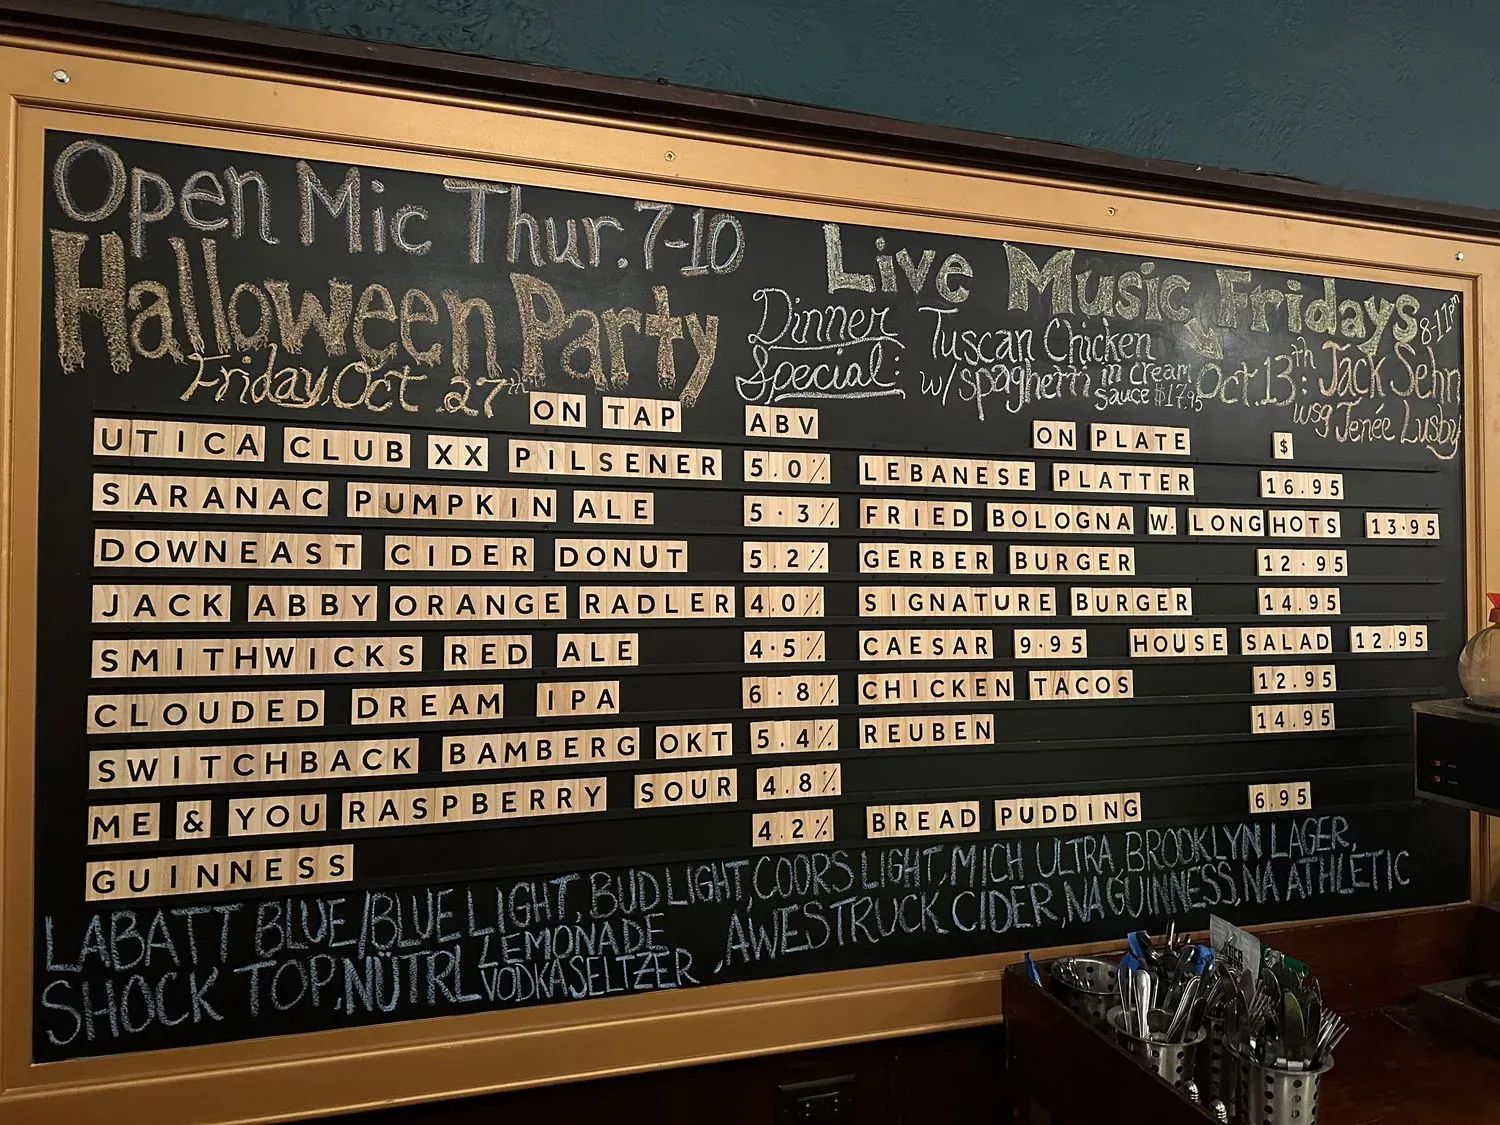 Open Mic Thur. 7-10
Halloween Party
Friday, Oct 27th
Live Music Fridays 8-11pm
Dinner Special: Tuscan Chicken
w/ spaghetti in cream sauce $17.95
Oct. 13th: Jack Sehn
wsg Jenée Lusby
ON TAP ABV
UTICA CLUB XX PILSENER 5.0%
SARANAC PUMPKIN ALE 5.3%
DOWNEAST CIDER DONUT 5.2%
JACK ABBY ORANGE RADLER 4.0%
SMITHWICKS RED ALE 4.5%
CLOUDED DREAM IPA 6.8%
SWITCHBACK BAMBERG OKT 5.4%
ME & YOU RASPBERRY SOUR 4.8%
GUINNESS 4.2%
ON PLATE $
LEBANESE PLATTER 16.95
FRIED BOLOGNA W. LONG HOTS 13.95
GERBER BURGER 12.95
SIGNATURE BURGER 14.95
CAESAR 9.95 HOUSE SALAD 12.95
CHICKEN TACOS 12.95
REUBEN 14.95
BREAD PUDDING 6.95
LABATT BLUE/BLUE LIGHT, BUD LIGHT, COORS LIGHT, MICH ULTRA, BROOKLYN LAGER,
SHOCK TOP, NÜTRL LEMONADE VODKA SELTZER, AWESTRUCK CIDER, NA GUINNESS, NA ATHLETIC